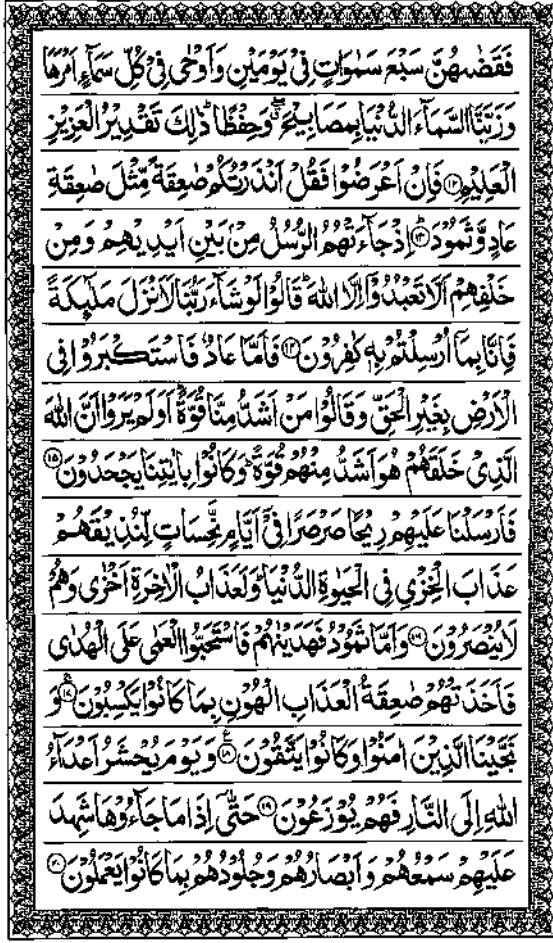 فَقَضٰىهُنَّ سَبْعَ سَمٰوَاتٍ فِیْ یَوْمَیْنِ وَاَوْحٰی فِیْ كُلِّ سَمَآءٍ اَمْرَهَا
وَزَیَّنَّا السَّمَآءَ الدُّنْیَا بِمَصَابِیْحَ ۖ وَحِفْظًا ؕ ذٰلِكَ تَقْدِیْرُ الْعَزِیْزِ
الْعَلِیْمِ ﴿۱۲﴾ فَاِنْ اَعْرَضُوْا فَقُلْ اَنْذَرْتُكُمْ صٰعِقَةً مِّثْلَ صٰعِقَةِ
عَادٍ وَّثَمُوْدَ ﴿۱۳﴾ اِذْ جَآءَتْهُمُ الرُّسُلُ مِنْۢ بَیْنِ اَیْدِیْهِمْ وَمِنْ
خَلْفِهِمْ اَلَّا تَعْبُدُوْۤا اِلَّا اللّٰهَ ؕ قَالُوْا لَوْ شَآءَ رَبُّنَا لَاَنْزَلَ مَلٰٓىِٕكَةً
فَاِنَّا بِمَاۤ اُرْسِلْتُمْ بِهٖ كٰفِرُوْنَ ﴿۱۴﴾ فَاَمَّا عَادٌ فَاسْتَكْبَرُوْا فِی
الْاَرْضِ بِغَیْرِ الْحَقِّ وَقَالُوْا مَنْ اَشَدُّ مِنَّا قُوَّةً ؕ اَوَلَمْ یَرَوْا اَنَّ اللّٰهَ
الَّذِیْ خَلَقَهُمْ هُوَ اَشَدُّ مِنْهُمْ قُوَّةً ؕ وَكَانُوْا بِاٰیٰتِنَا یَجْحَدُوْنَ ﴿۱۵﴾
فَاَرْسَلْنَا عَلَیْهِمْ رِیْحًا صَرْصَرًا فِیْۤ اَیَّامٍ نَّحِسَاتٍ لِّنُذِیْقَهُمْ
عَذَابَ الْخِزْیِ فِی الْحَیٰوةِ الدُّنْیَا ؕ وَلَعَذَابُ الْاٰخِرَةِ اَخْزٰی وَهُمْ
لَا یُنْصَرُوْنَ ﴿۱۶﴾ وَاَمَّا ثَمُوْدُ فَهَدَیْنٰهُمْ فَاسْتَحَبُّوا الْعَمٰی عَلَی الْهُدٰی
فَاَخَذَتْهُمْ صٰعِقَةُ الْعَذَابِ الْهُوْنِ بِمَا كَانُوْا یَكْسِبُوْنَ ﴿۱۷﴾ وَ
نَجَّیْنَا الَّذِیْنَ اٰمَنُوْا وَكَانُوْا یَتَّقُوْنَ ﴿۱۸﴾ وَیَوْمَ یُحْشَرُ اَعْدَآءُ
اللّٰهِ اِلَی النَّارِ فَهُمْ یُوْزَعُوْنَ ﴿۱۹﴾ حَتّٰۤی اِذَا مَا جَآءُوْهَا شَهِدَ
عَلَیْهِمْ سَمْعُهُمْ وَاَبْصَارُهُمْ وَجُلُوْدُهُمْ بِمَا كَانُوْا یَعْمَلُوْنَ ﴿۲۰﴾